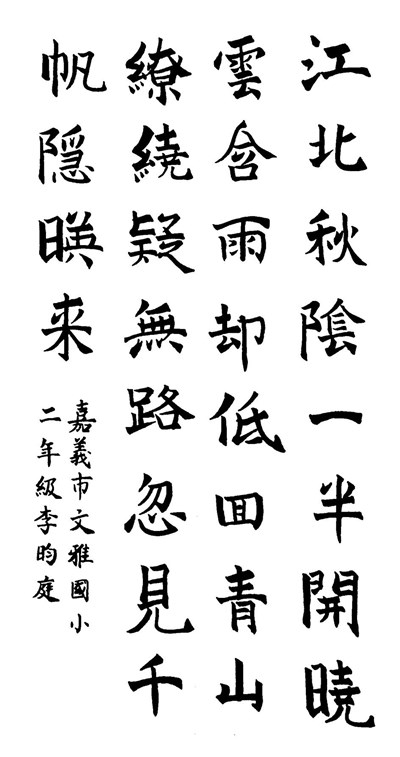 江北秋陰一半開曉
雲含雨却低回青山
繚繞疑無路忽見千
帆隠暎来
嘉義市文雅國小
二年級李昀庭